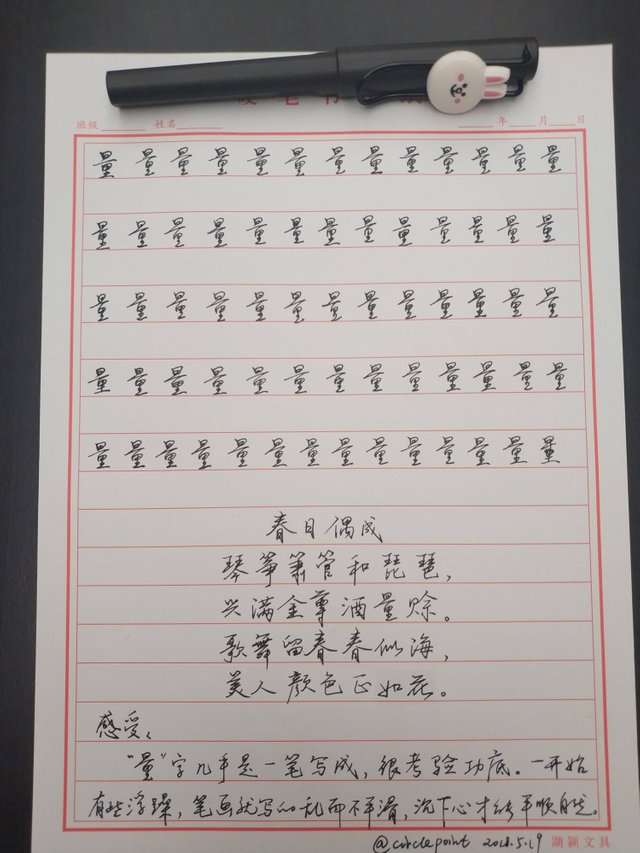 笔书
班级 姓名 年 月 日
量量量量量量量量量量量量量
量量量量量量量量量量量量量
量量量量量量量量量量量量量
量量量量量量量量量量量量量
量量量量量量量量量量量量量量
春日偶成
琴筝箫管和琵琶,
兴满金尊酒量赊。
歌舞留春春似海,
美人颜色正如花。
感受:
"量"字几乎是一笔写成,很考验功底。一开始
有些浮躁,笔画就写的乱而不平滑,沉下心才能平顺自然。
@circlepoint 2018.5.19 湖颖文具